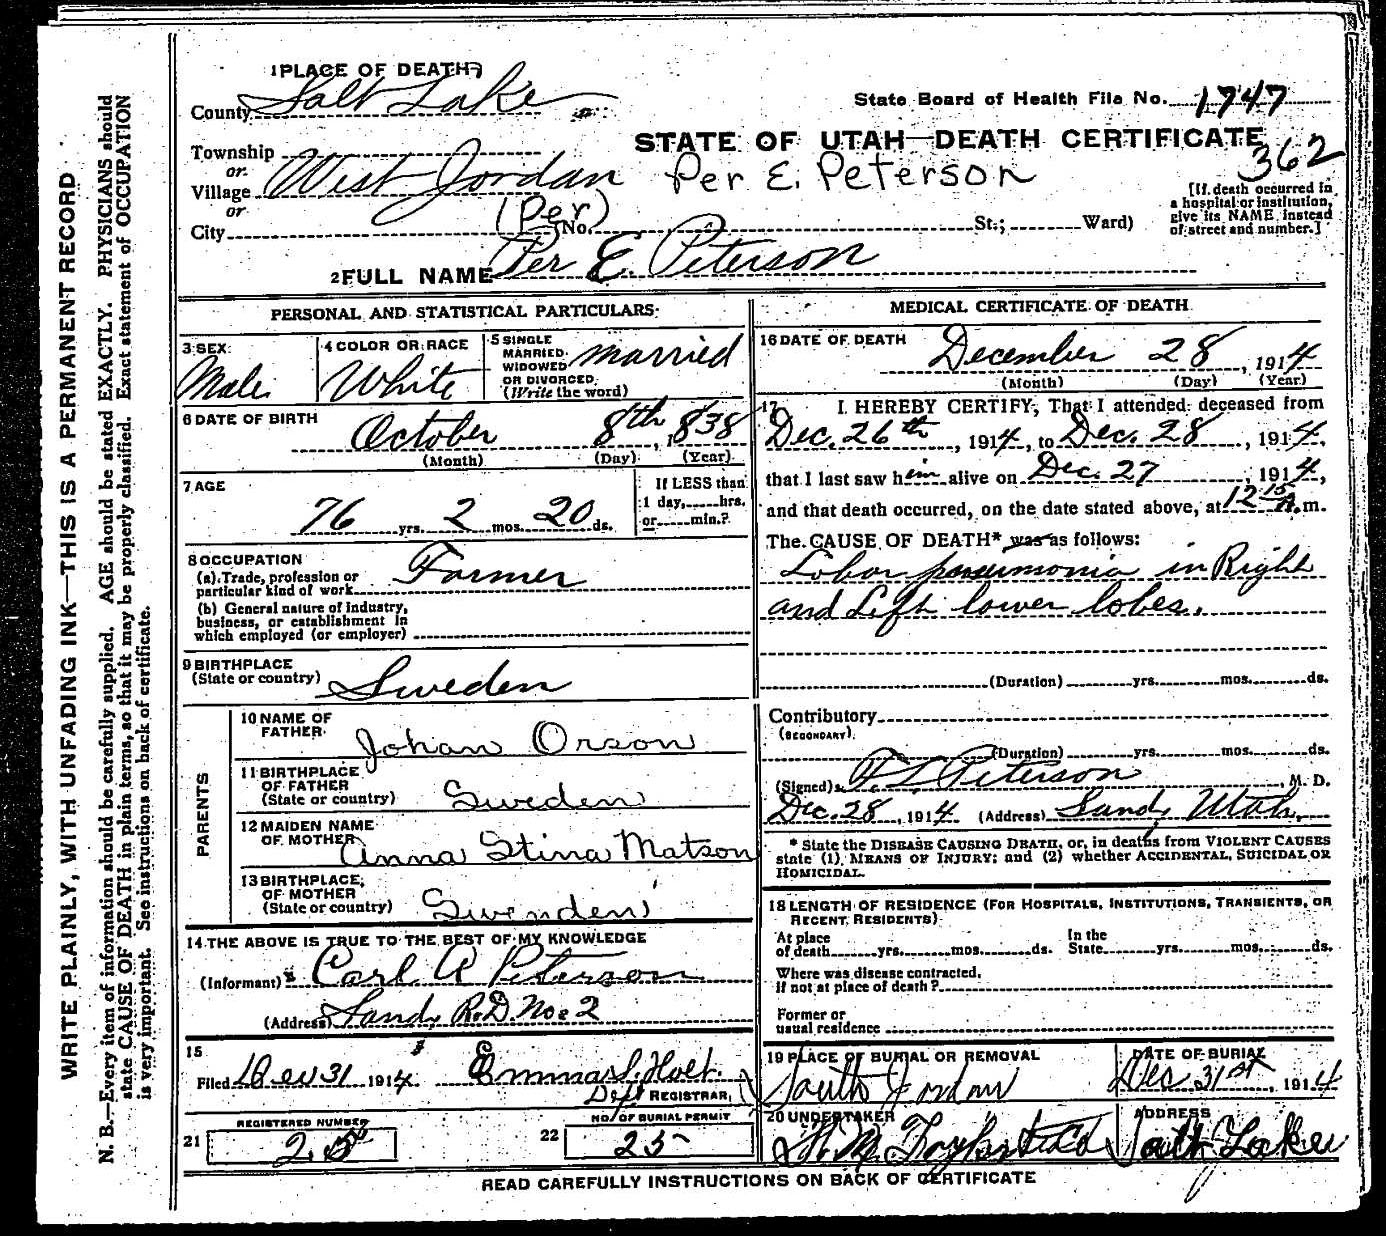 1 PLACE OF DEATH
County Salt Lake
State Board of Health File No. 1747
STATE OF UTAH—DEATH CERTIFICATE
362
Township
or
Village West Jordan
Per E. Peterson
or
City
(Per)
No. St.; Ward)
[If death occurred in
a hospital or institution,
give its NAME instead
of street and number.]
2 FULL NAME Per E. Peterson
PERSONAL AND STATISTICAL PARTICULARS
3 SEX
Male
4 COLOR OR RACE
White
5 SINGLE
MARRIED
WIDOWED
OR DIVORCED
(Write the word)
married
6 DATE OF BIRTH
October 8th, 1838
(Month) (Day) (Year)
7 AGE
76 yrs. 2 mos. 20 ds.
If LESS than
1 day, hrs.
or min.?
8 OCCUPATION
(a) Trade, profession or
particular kind of work Farmer
(b) General nature of industry,
business, or establishment in
which employed (or employer)
9 BIRTHPLACE
(State or country) Sweden
PARENTS
10 NAME OF
FATHER Johan Orson
11 BIRTHPLACE
OF FATHER
(State or country) Sweden
12 MAIDEN NAME
OF MOTHER Anna Stina Matson
13 BIRTHPLACE
OF MOTHER
(State or country) Swenden
14 THE ABOVE IS TRUE TO THE BEST OF MY KNOWLEDGE
(Informant) Carl A Peterson
(Address) Sandy R.D. No. 2
15
Filed Dec 31 1914 Emma S. Holt
Dept REGISTRAR
21 REGISTERED NUMBER
25
22 NO. OF BURIAL PERMIT
25
MEDICAL CERTIFICATE OF DEATH
16 DATE OF DEATH
December 28, 1914
(Month) (Day) (Year)
17 I HEREBY CERTIFY, That I attended deceased from
Dec. 26th, 1914, to Dec. 28, 1914,
that I last saw him alive on Dec. 27, 1914,
and that death occurred, on the date stated above, at 12 15 A.m.
The CAUSE OF DEATH* was as follows:
Lobar pneumonia in Right
and Left lower lobes.
(Duration) yrs. mos. ds.
Contributory
(SECONDARY)
(Duration) yrs. mos. ds.
(Signed) Peterson, M. D.
Dec. 28, 1914 (Address) Sandy Utah.
* State the DISEASE CAUSING DEATH, or, in deaths from VIOLENT CAUSES
state (1) MEANS OF INJURY; and (2) whether ACCIDENTAL, SUICIDAL OR
HOMICIDAL.
18 LENGTH OF RESIDENCE (FOR HOSPITALS, INSTITUTIONS, TRANSIENTS, OR
RECENT RESIDENTS)
At place
of death yrs. mos. ds.
In the
State yrs. mos. ds.
Where was disease contracted,
if not at place of death?
Former or
usual residence
19 PLACE OF BURIAL OR REMOVAL
South Jordan
DATE OF BURIAL
Dec 31st, 1914
20 UNDERTAKER
ADDRESS
Salt Lake
READ CAREFULLY INSTRUCTIONS ON BACK OF CERTIFICATE
WRITE PLAINLY, WITH UNFADING INK—THIS IS A PERMANENT RECORD
N. B.—Every item of information should be carefully supplied. AGE should be stated EXACTLY. PHYSICIANS should
state CAUSE OF DEATH in plain terms, so that it may be properly classified. Exact statement of OCCUPATION
is very important. See instructions on back of certificate.